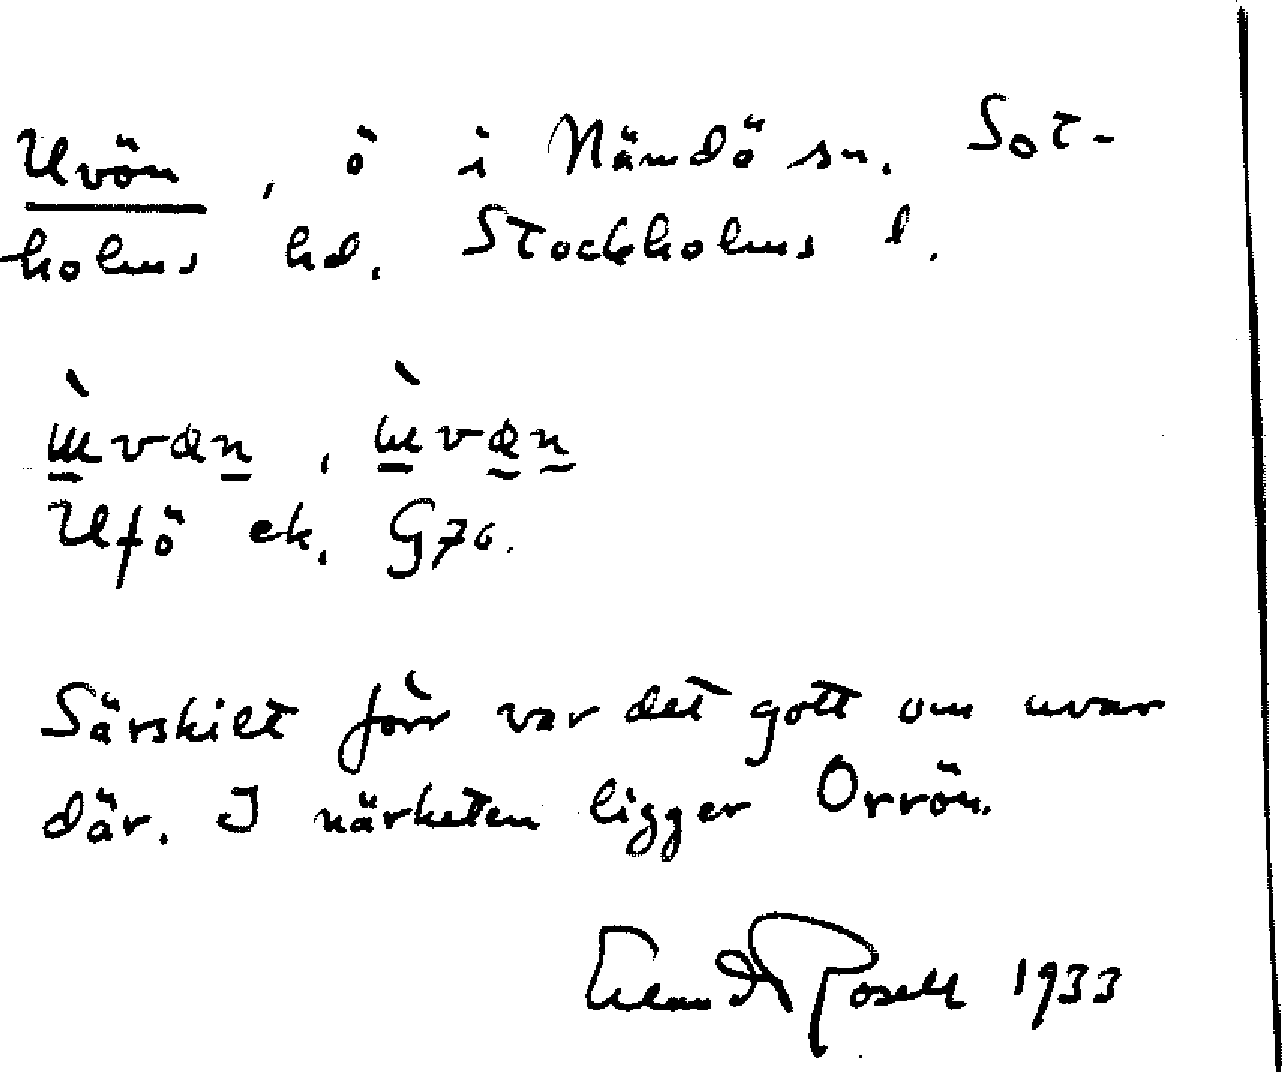 Uvön, ö i Nämdö sn. Sot-
holms hd. Stockholms l.
Ufö ek. G70.
Särskilt förr var det gott om uvar
där. I närheten ligger Orrön.
Erland Rosell 1933